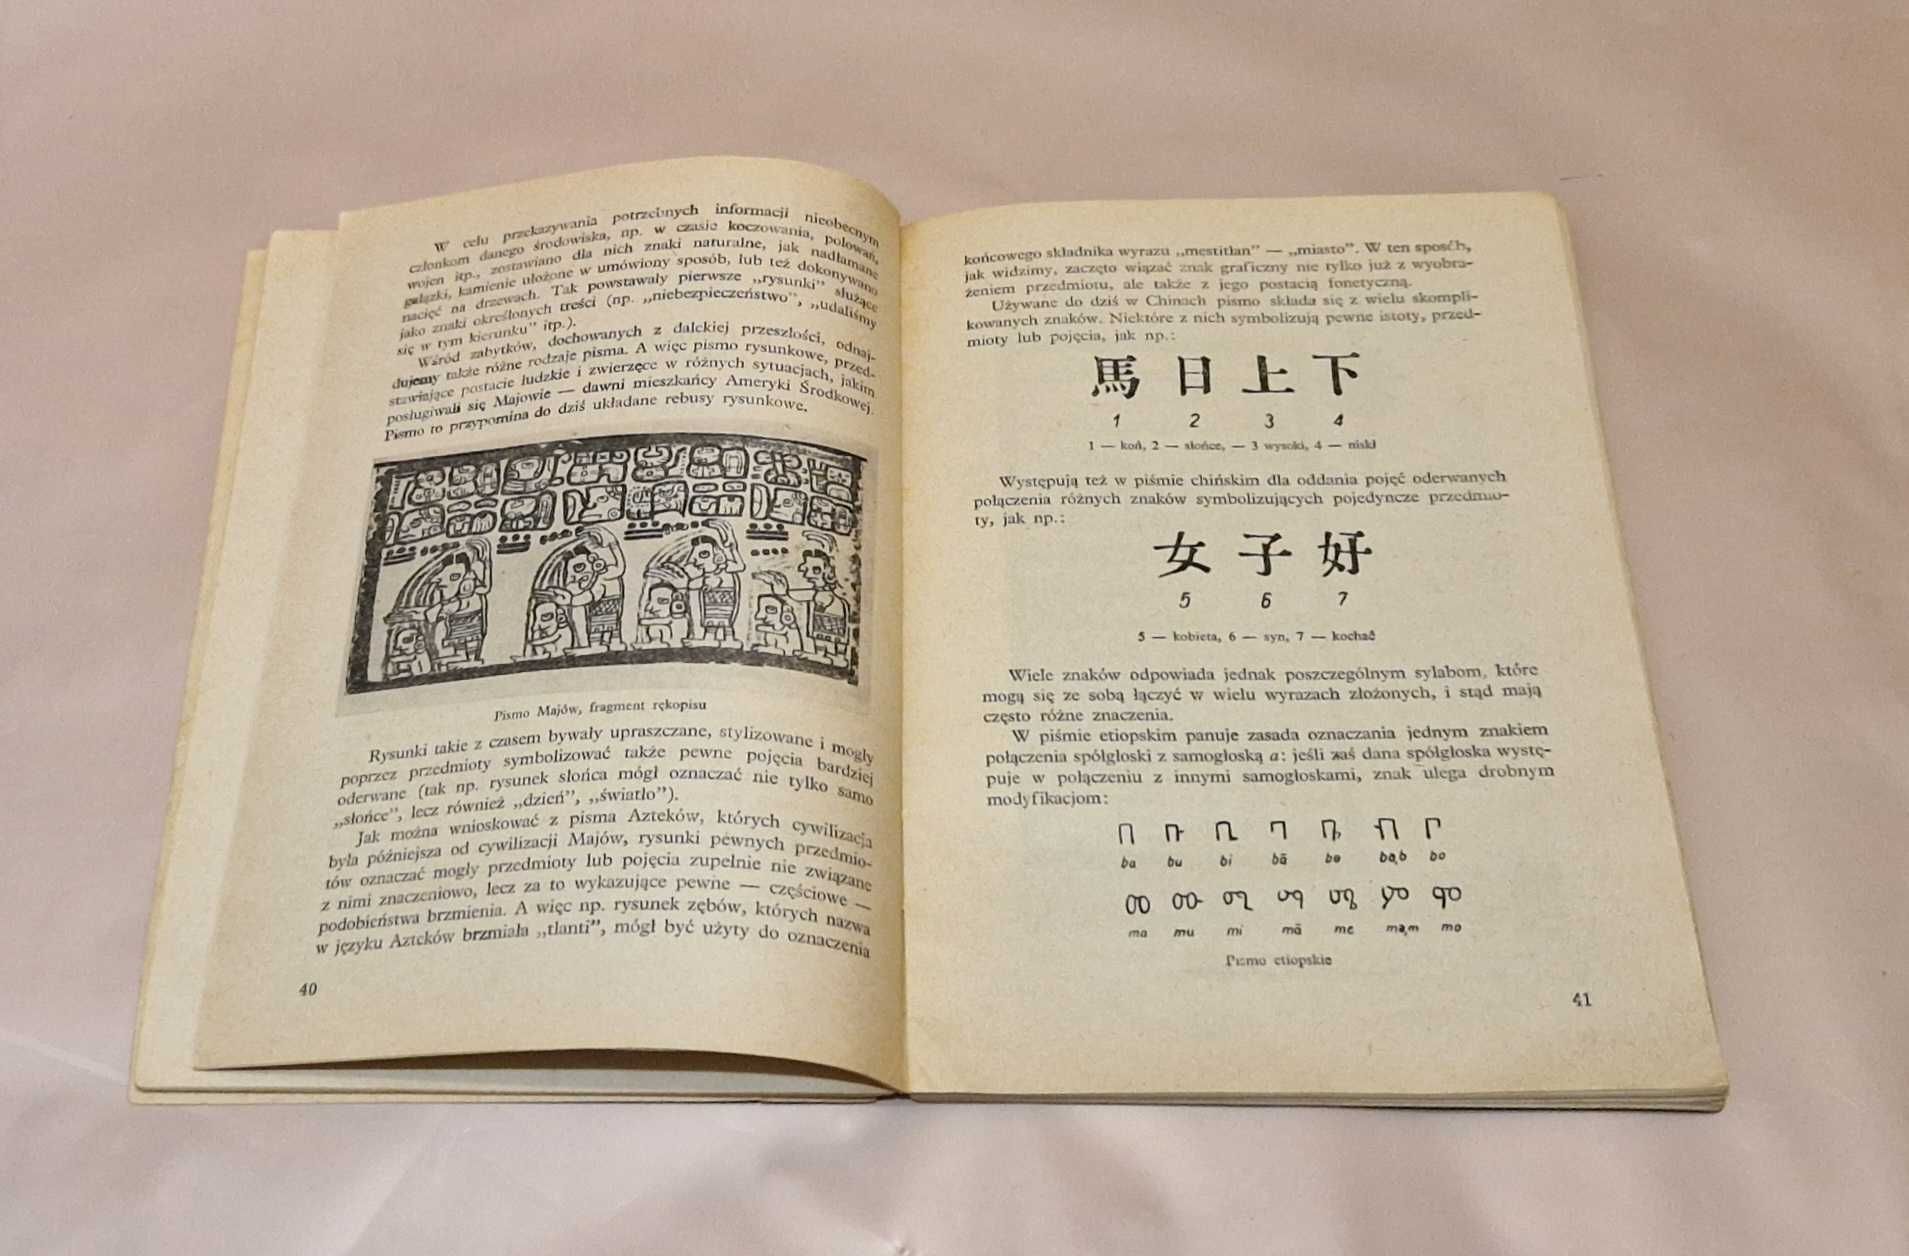 W celu przekazywania potrzebnych informacji nieobecnym
członkom danego środowiska, np. w czasie koczowania, polowań,
wojen itp., zostawiano dla nich znaki naturalne, jak nadłamane
gałązki, kamienie ułożone w umówiony sposób, lub też dokonywano
nacięć na drzewach. Tak powstawały pierwsze „rysunki” służące
jako znaki określonych treści (np. „niebezpieczeństwo”, „udaliśmy
się w tym kierunku” itp.).
Wśród zabytków, dochowanych z dalekiej przeszłości, odnaj-
dujemy także różne rodzaje pisma. A więc pismo rysunkowe, przed-
stawiające postacie ludzkie i zwierzęce w różnych sytuacjach, jakim
posługiwali się Majowie — dawni mieszkańcy Ameryki Środkowej.
Pismo to przypomina do dziś układane rebusy rysunkowe.
Pismo Majów, fragment rękopisu
Rysunki takie z czasem bywały upraszczane, stylizowane i mogły
poprzez przedmioty symbolizować także pewne pojęcia bardziej
oderwane (tak np. rysunek słońca mógł oznaczać nie tylko samo
„słońce”, lecz również „dzień”, „światło”).
Jak można wnioskować z pisma Azteków, których cywilizacja
była późniejsza od cywilizacji Majów, rysunki pewnych przedmio-
tów oznaczać mogły przedmioty lub pojęcia zupełnie nie związane
z nimi znaczeniowo, lecz za to wykazujące pewne — częściowe —
podobieństwa brzmienia. A więc np. rysunek zębów, których nazwa
w języku Azteków brzmiała „tlanti”, mógł być użyty do oznaczenia
40
końcowego składnika wyrazu „mestitlan” — „miasto”. W ten sposób,
jak widzimy, zaczęto wiązać znak graficzny nie tylko już z wyobra-
żeniem przedmiotu, ale także z jego postacią fonetyczną.
Używane do dziś w Chinach pismo składa się z wielu skompli-
kowanych znaków. Niektóre z nich symbolizują pewne istoty, przed-
mioty lub pojęcia, jak np.:
馬 日 上 下
1 2 3 4
1 — koń, 2 — słońce, — 3 wysoki, 4 — niski
Występują też w piśmie chińskim dla oddania pojęć oderwanych
połączenia różnych znaków symbolizujących pojedyncze przedmio-
ty, jak np.:
女 子 好
5 6 7
5 — kobieta, 6 — syn, 7 — kochać
Wiele znaków odpowiada jednak poszczególnym sylabom, które
mogą się ze sobą łączyć w wielu wyrazach złożonych, i stąd mają
często różne znaczenia.
W piśmie etiopskim panuje zasada oznaczania jednym znakiem
połączenia spółgłoski z samogłoską a: jeśli zaś dana spółgłoska wystę-
puje w połączeniu z innymi samogłoskami, znak ulega drobnym
modyfikacjom:
በ ቡ ቢ ባ ቤ ብ ቦ
ba bu bi bā be bə,b bo
መ ሙ ሚ ማ ሜ ም ሞ
ma mu mi mā me mə,m mo
Pismo etiopskie
41